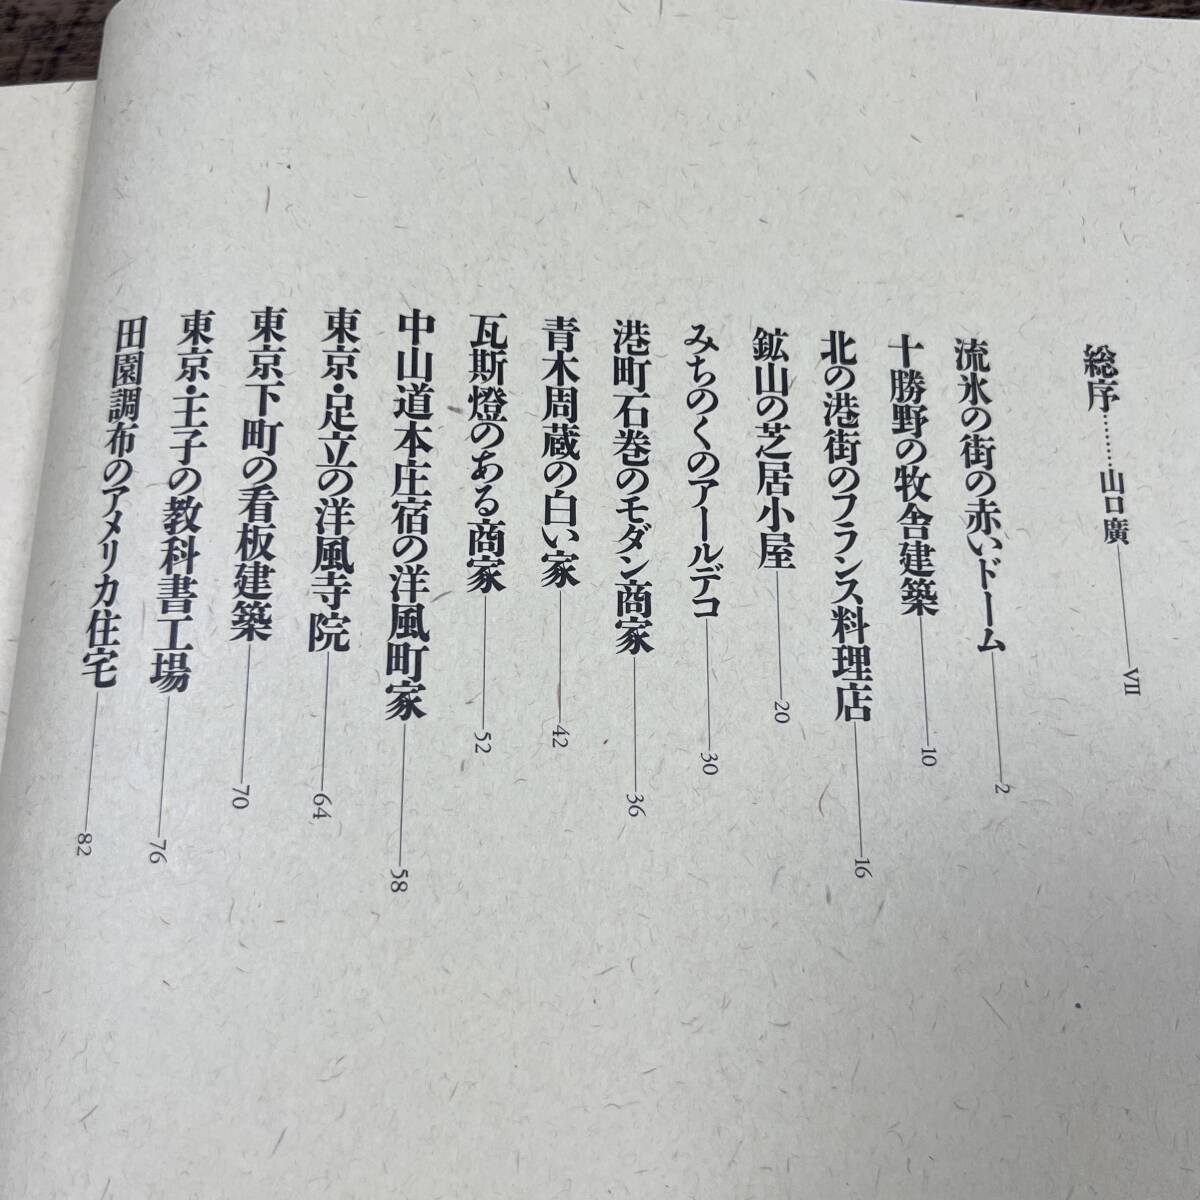 総序………山口廣 VII
流氷の街の赤いドーム 2
十勝野の牧舎建築 10
北の港街のフランス料理店 16
鉱山の芝居小屋 20
みちのくのアールデコ 30
港町石巻のモダン商家 36
青木周蔵の白い家 42
瓦斯燈のある商家 52
中山道本庄宿の洋風町家 58
東京・足立の洋風寺院 64
東京下町の看板建築 70
東京・王子の教科書工場 76
田園調布のアメリカ住宅 82